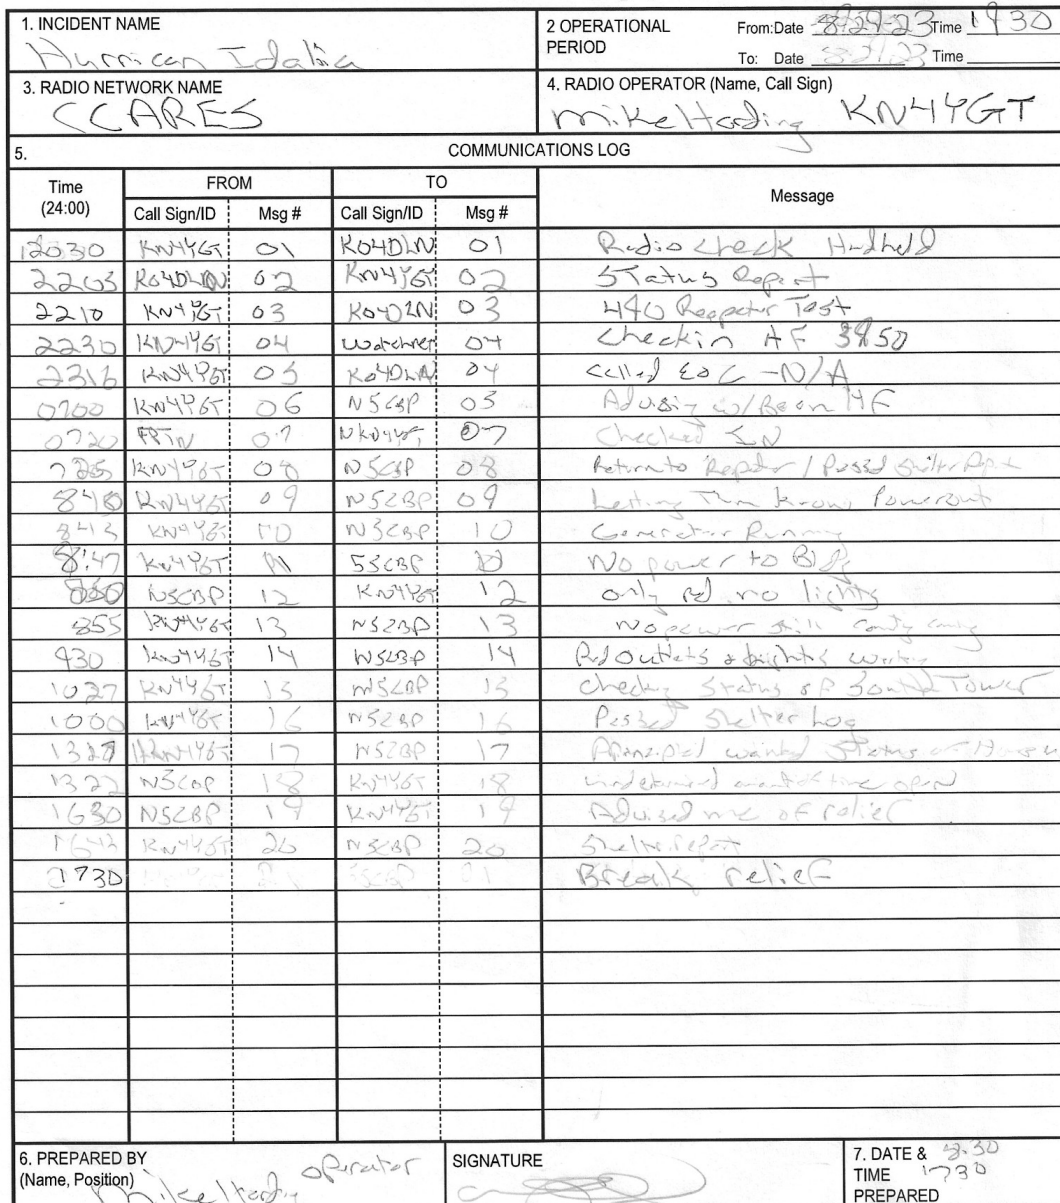 1. INCIDENT NAME
Hurrican Idalia
2 OPERATIONAL PERIOD
From: Date 8-29-23 Time 1930
To: Date Time
3. RADIO NETWORK NAME
CCARES
4. RADIO OPERATOR (Name, Call Sign)
Mike Harding KN4YGT
5. COMMUNICATIONS LOG
Time (24:00) FROM TO Message
Call Sign/ID Msg # Call Sign/ID Msg #
2030 KN4YGT 01 KO4DLN 01 Radio check Handheld
2203 KO4DLN 02 KN4YGT 02 Status Report
2210 KN4YGT 03 KO4DLN 03 440 Reapeter Test
2230 KN4YGT 04 04 Checkin HF 3950
2316 KN4YGT 05 KO4DLN 04 Called EOC - N/A
0700 KN4YGT 06 N5CBP 05 HF
0720 07 07 Checked IN
725 KN4YGT 08 N5CBP 08 Return to / Passed
840 KN4YGT 09 N5CBP 09 Letting Them know Power out
843 KN4YGT 10 N5CBP 10 Generator Running
8:47 KN4YGT 11 5SCBP No power to Bldg
850 N5CBP 12 KN4YGT 12 only red no lights
855 KN4YGT 13 N5CBP 13 No power still county
930 KN4YGT 14 N5CBP 14 Red outlets & lights
1027 KN4YGT 15 N5CBP 15 Status of South Tower
1000 KN4YGT 16 N5CBP 16 Passed Shelter Log
KN4YGT 17 N5CBP 17 wanted Status of
1322 N5CBP 18 KN4YGT 18
1630 N5CBP 19 KN4YGT 19 Advised me of relief
1643 KN4YGT 20 N5CBP 20 Shelter report
1730 Break relief
6. PREPARED BY (Name, Position)
Mike Harding operator
SIGNATURE
7. DATE & TIME PREPARED
8-30 1730